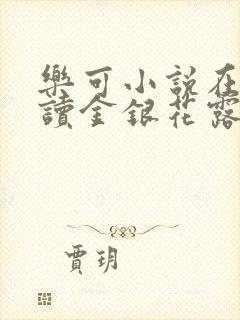 樂可小說在
讀金銀花露
賈玥